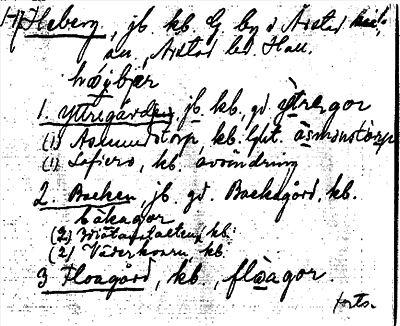 H) Heberg, jb. kb. G by i Årstad
sn, Årstad hd. Hall.
hæjbær
1. Yttregården, jb. kb., gd. ỳtregor
(1) Asmundstorp, kb. lght. àsmonstòrp
(1) Sofiero, kb. avsöndring
2. Backen, jb. gd. Backagård, kb.
bakagor
(2) kb.
(2) Väderkvarn, kb.
3 Floagård, kb., floagor.
forts.